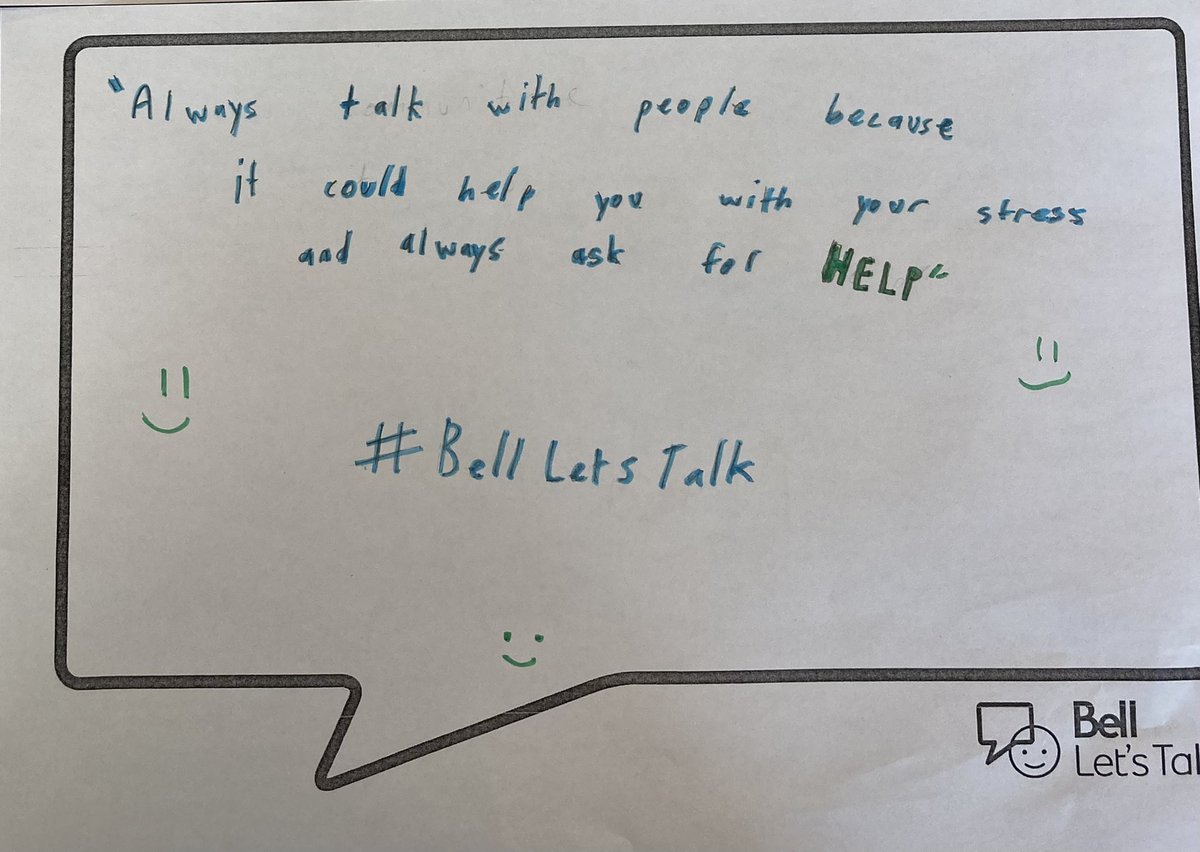 "Always talk with people because
it could help you with your stress
and always ask for HELP"
#BellLetsTalk
Bell
Let's Tal